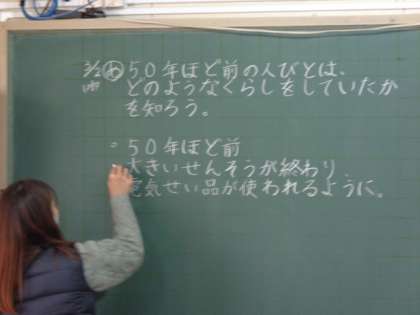 3/2 め 50年ほど前の人びとは、
どのようなくらしをしていたか
を知ろう。
・50年ほど前
大きいせんそうが終わり、
電気せい品が使われるように。